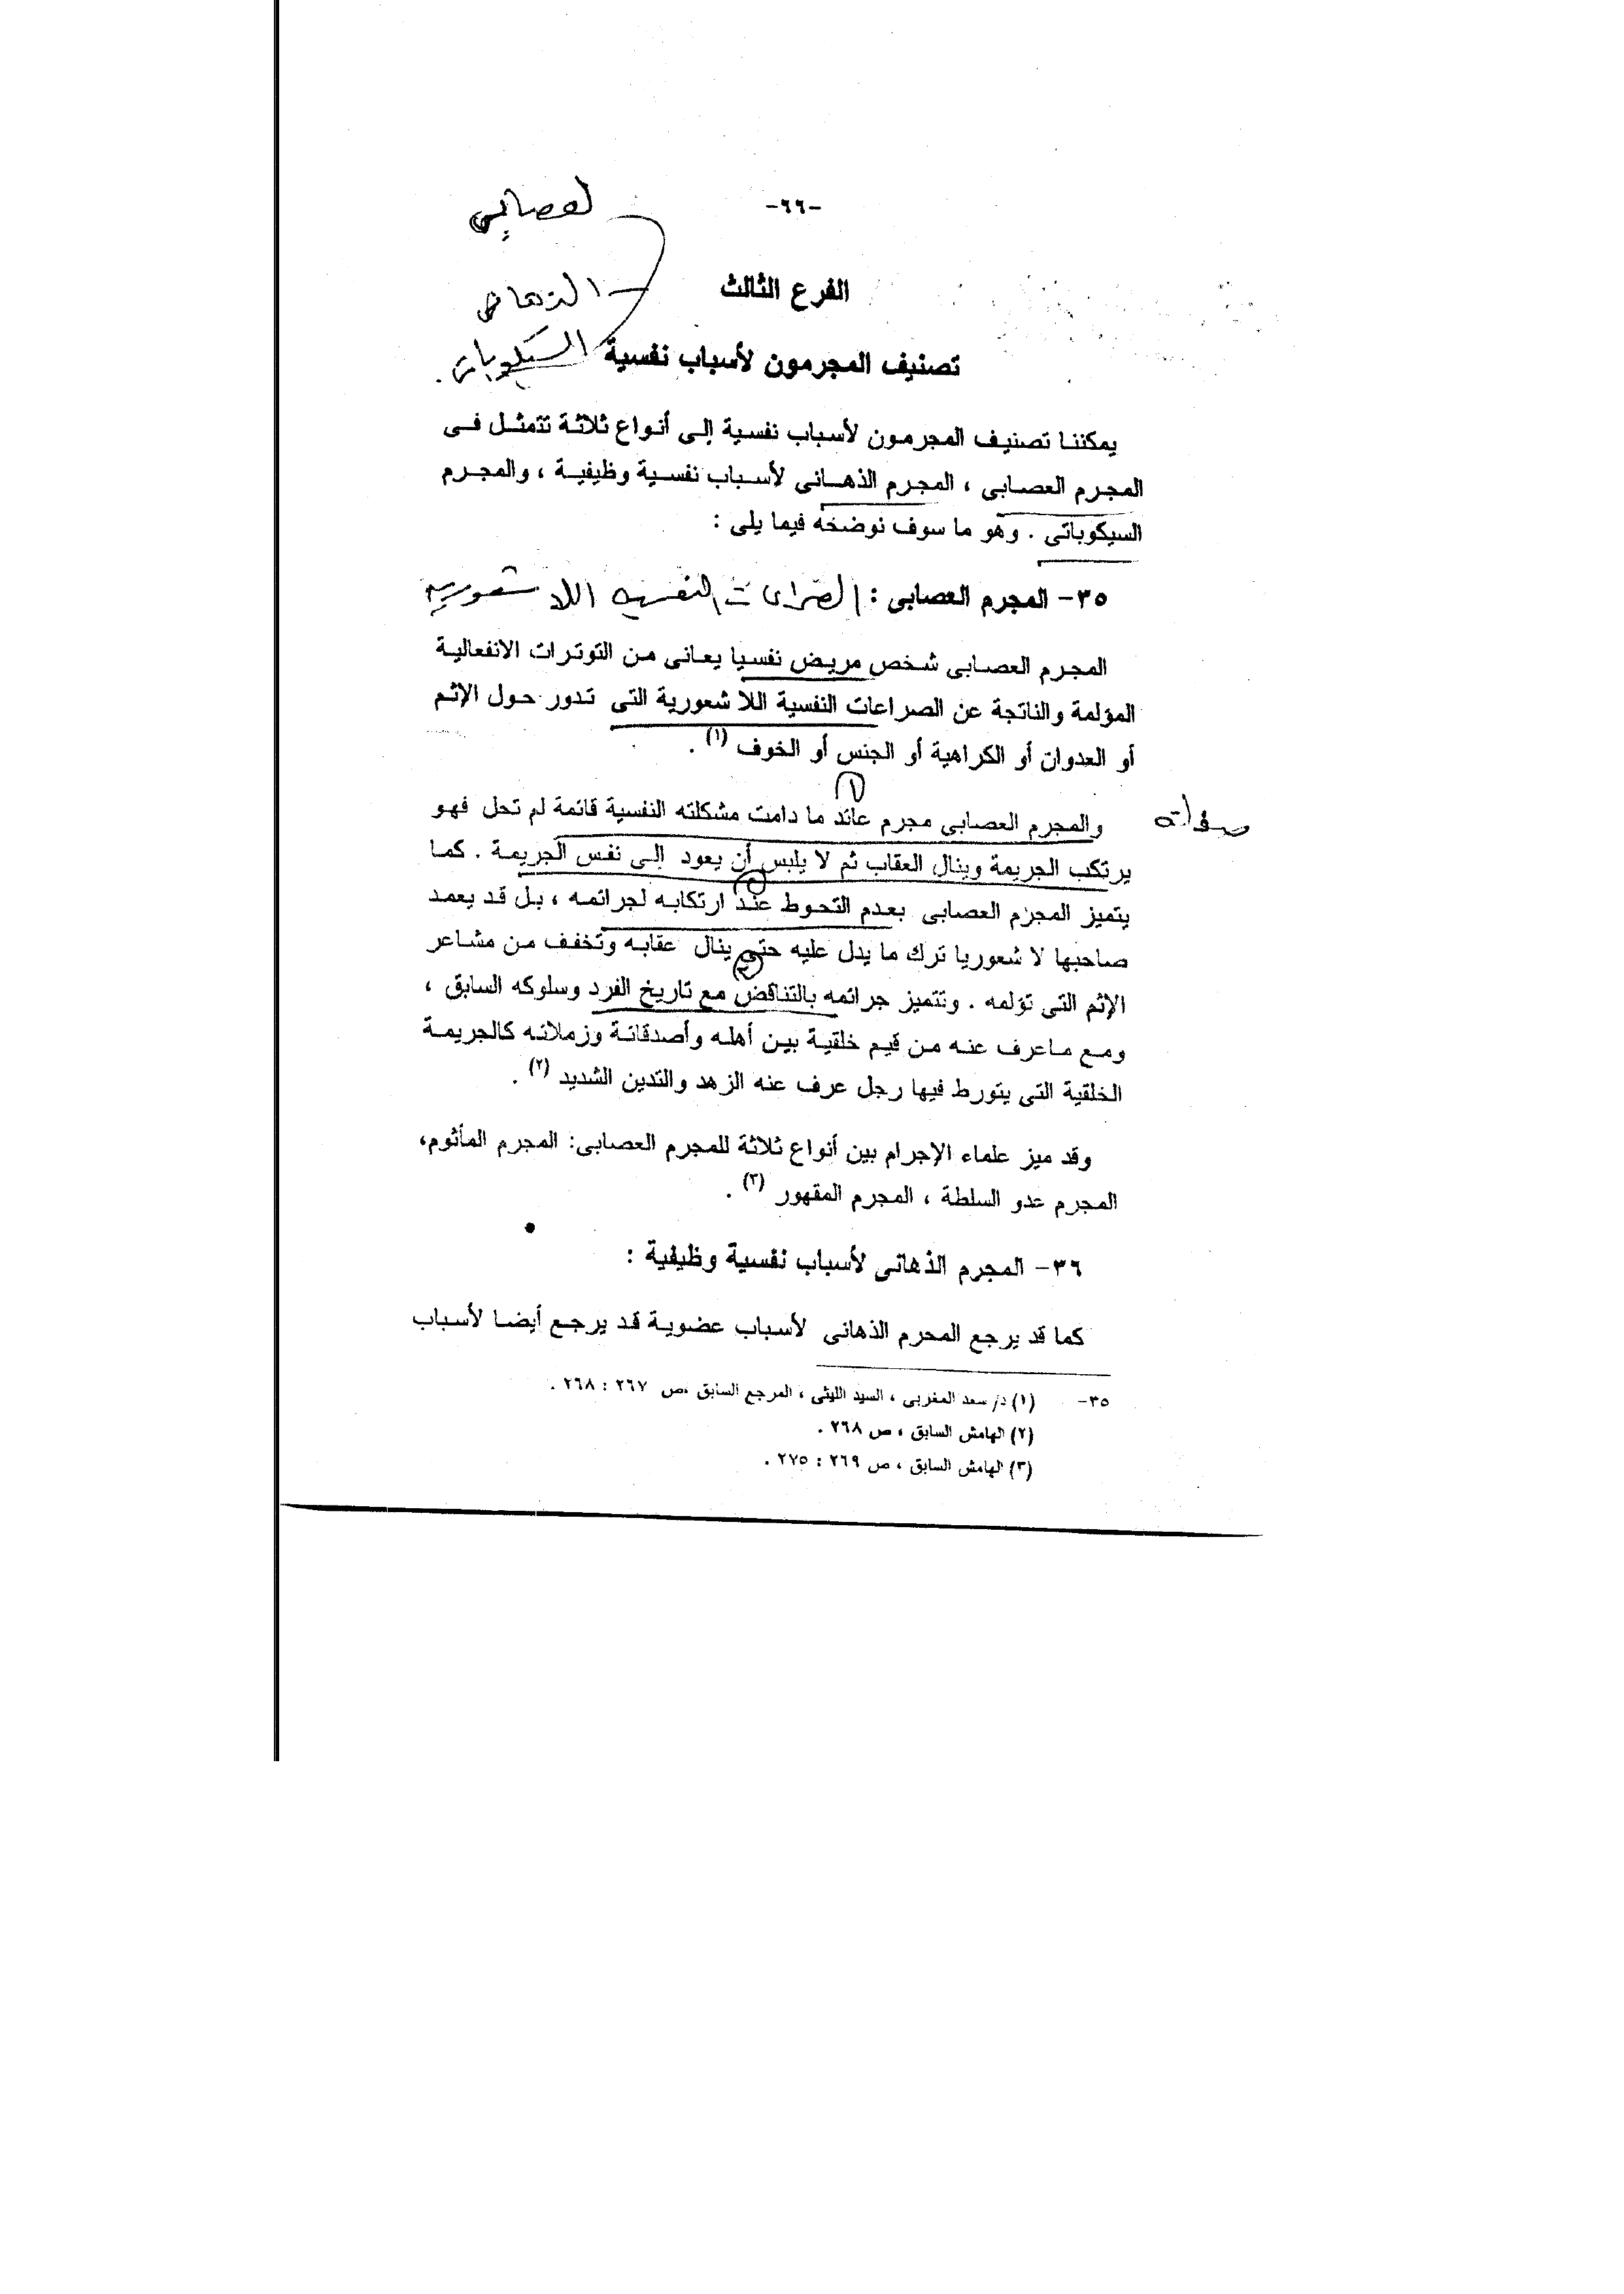 -٦٦-
العصابي
الفرع الثالث
الذهاني
تصنيف المجرمون لأسباب نفسية
السيكوباتي
يمكننا تصنيف المجرمون لأسباب نفسية إلى أنواع ثلاثة تتمثل فى
المجرم العصابى ، المجرم الذهانى لأسباب نفسية وظيفية ، والمجرم
السيكوباتى . وهو ما سوف نوضحه فيما يلى :
٣٥- المجرم العصابى : الصراعات النفسيه اللا شعوريه
المجرم العصابى شخص مريض نفسيا يعانى من التوترات الانفعالية
المؤلمة والناتجة عن الصراعات النفسية اللا شعورية التى تدور حول الإثم
أو العدوان أو الكراهية أو الجنس أو الخوف (١) .
صفاته
والمجرم العصابى مجرم عائد ما دامت مشكلته النفسية قائمة لم تحل فهو
يرتكب الجريمة وينال العقاب ثم لا يلبس أن يعود إلى نفس الجريمة . كما
يتميز المجرم العصابى بعدم التحوط عند ارتكابه لجرائمه ، بل قد يعمد
صاحبها لا شعوريا ترك ما يدل عليه حتى ينال عقابه وتخفف من مشاعر
الإثم التى تؤلمه . وتتميز جرائمه بالتناقض مع تاريخ الفرد وسلوكه السابق ،
ومع ماعرف عنه من قيم خلقية بين أهله وأصدقائة وزملائه كالجريمة
الخلقية التى يتورط فيها رجل عرف عنه الزهد والتدين الشديد (٢) .
وقد ميز علماء الإجرام بين أنواع ثلاثة للمجرم العصابى: المجرم المأثوم،
المجرم عدو السلطة ، المجرم المقهور (٣) .
٣٦- المجرم الذهانى لأسباب نفسية وظيفية :
كما قد يرجع المحرم الذهانى لأسباب عضوية قد يرجع أيضا لأسباب
٣٥- (١) د/ سعد المغربى ، السيد الليثى ، المرجع السابق ،ص ٢٦٧ : ٢٦٨ .
(٢) الهامش السابق ، ص ٢٦٨ .
(٣) الهامش السابق ، ص ٢٦٩ : ٢٧٥ .